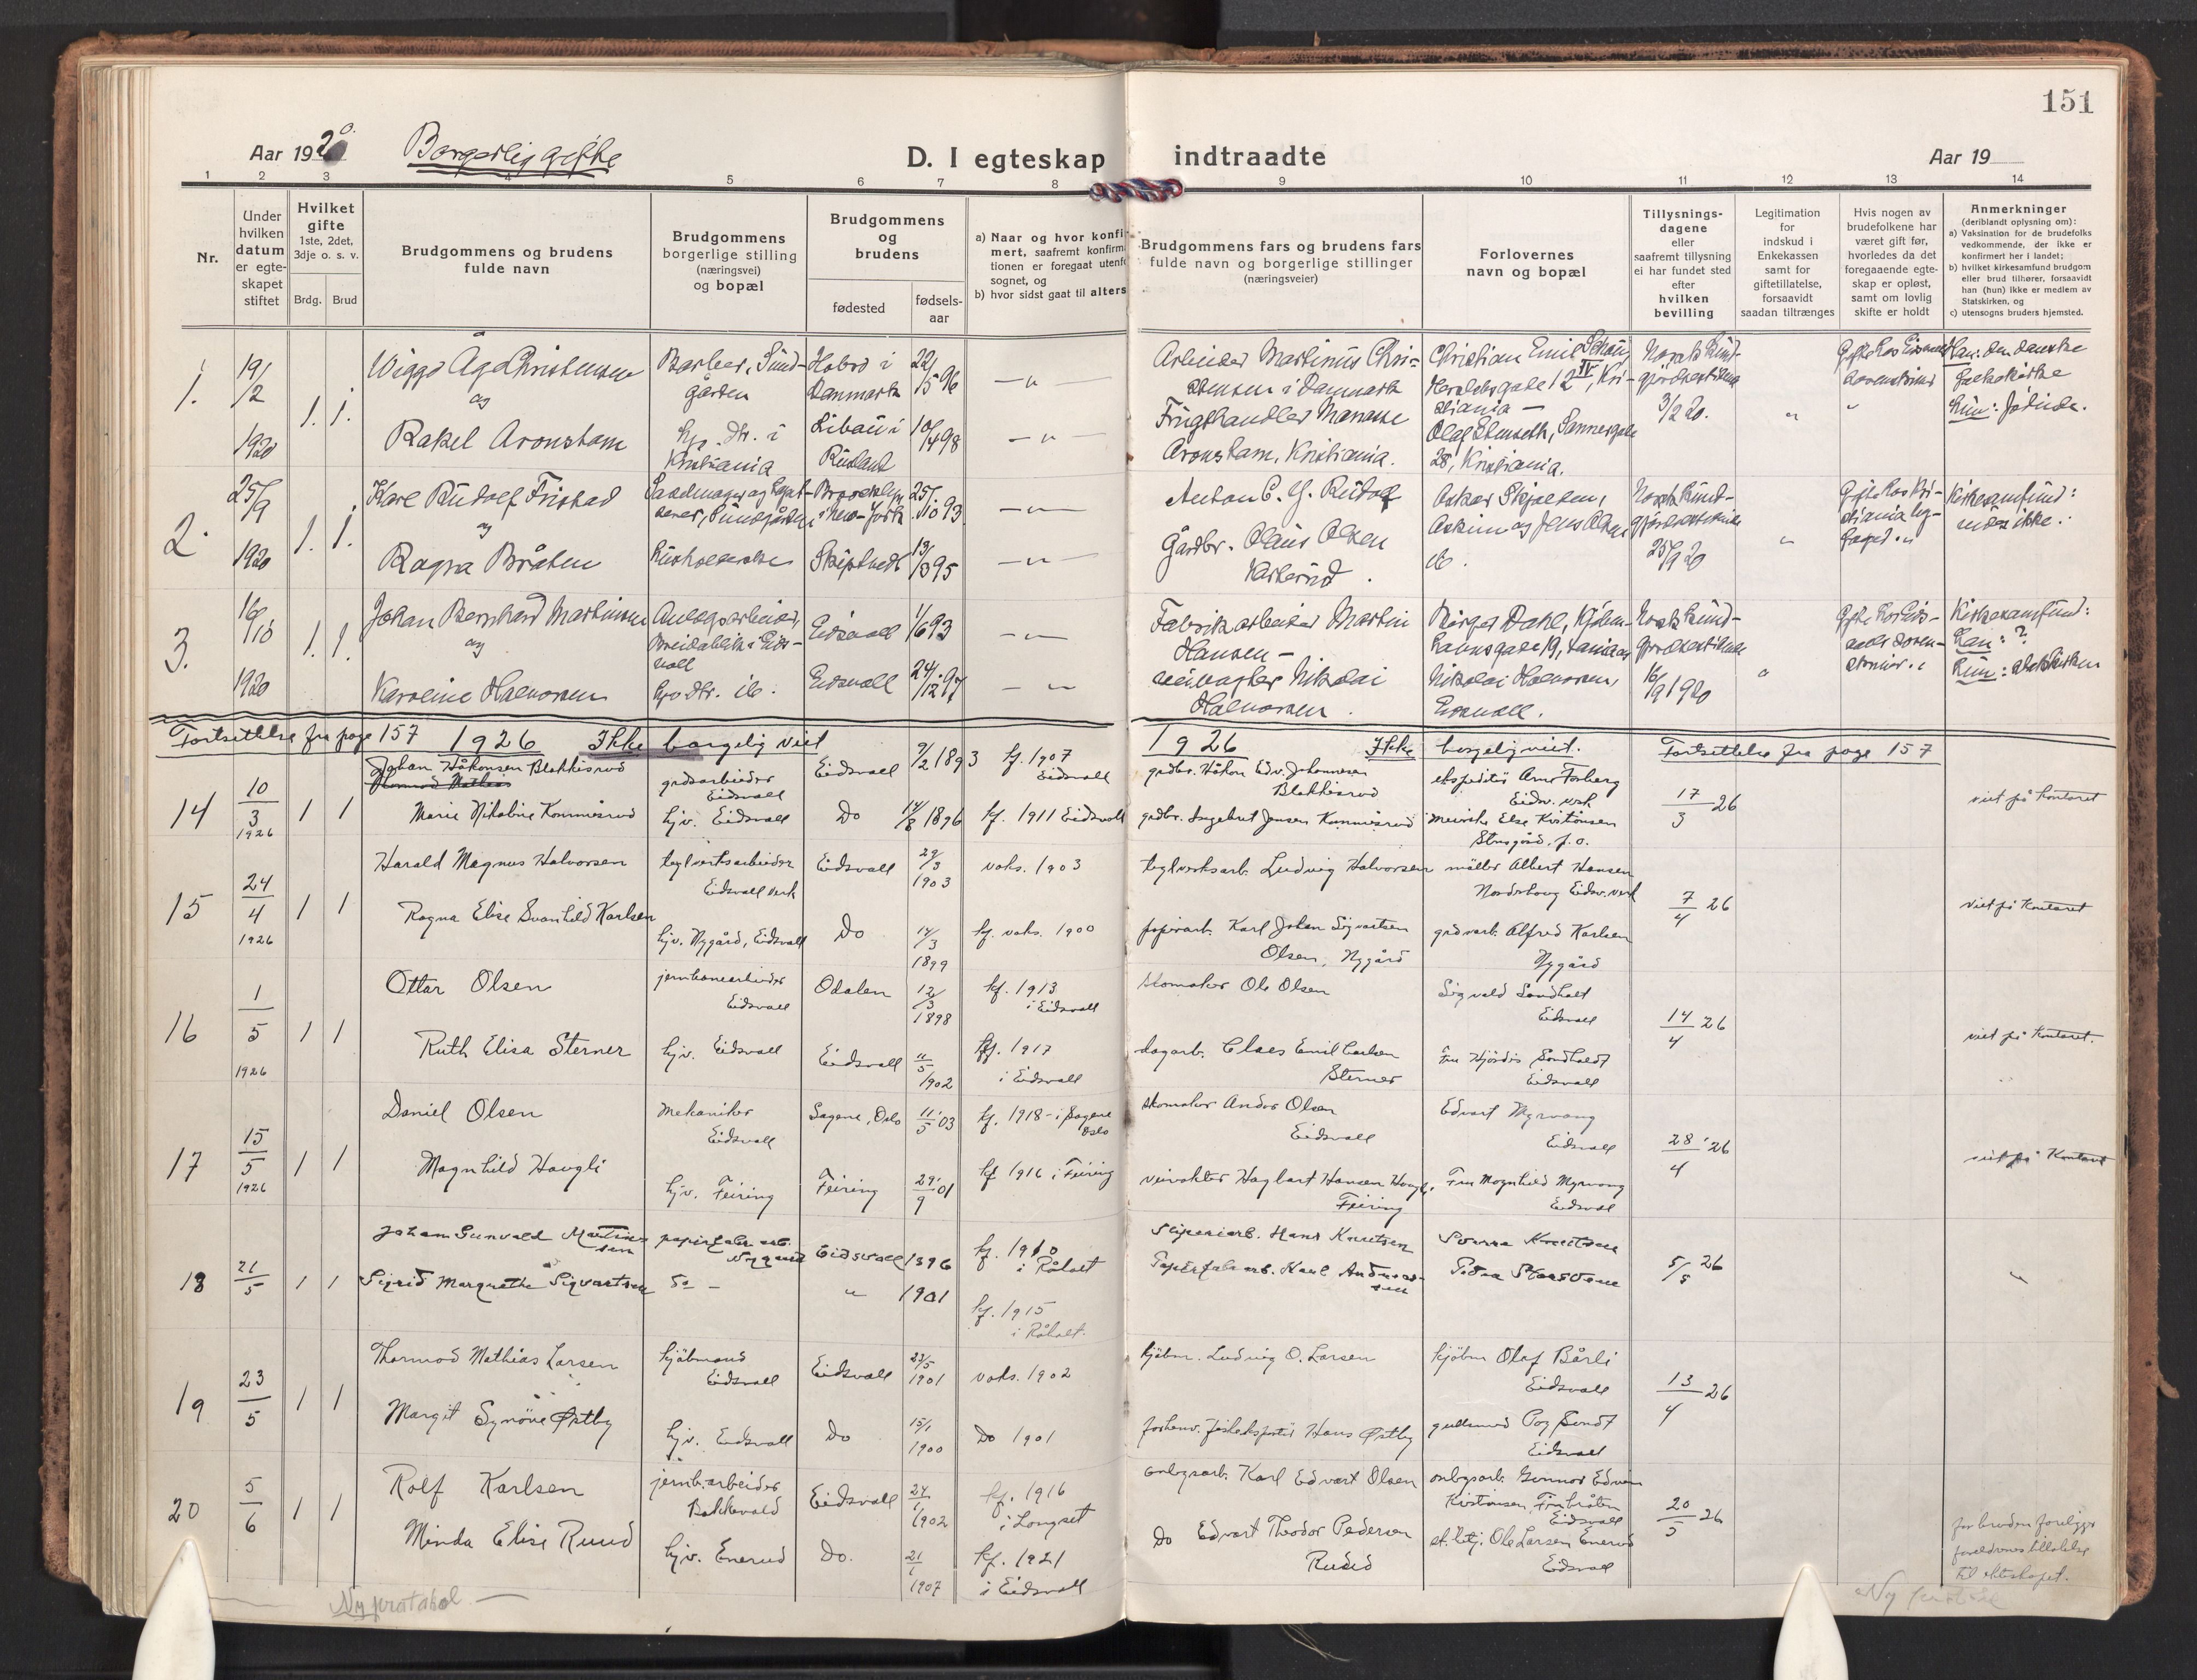 151
Aar 1920.
Borgerlig gifte
D. I egteskap indtraadte
Aar 19
1 2 3 4 5 6 7 8 9 10 11 12 13 14
Nr.
Under hvilken datum er egte-skapet stiftet
Hvilket gifte
1ste, 2det, 3dje o. s. v.
Brdg. Brud
Brudgommens og brudens fulde navn
Brudgommens borgerlige stilling (næringsvei) og bopæl
Brudgommens og brudens
fødested
fødsels-aar
a) Naar og hvor konfi
mert, saafremt konfirm
tionen er foregaat utenf
sognet, og
b) hvor sidst gaat til alters
Brudgommens fars og brudens fars
fulde navn og borgerlige stillinger
(næringsveier)
Forlovernes
navn og bopæl
Tillysnings-
dagene
eller
saafremt tillysning
ei har fundet sted
efter
hvilken
bevilling
Legitimation
for
indskud i
Enkekassen
samt for
giftetillatelse,
forsaavidt
saadan tiltrænges
Hvis nogen av
brudefolkene har
været gift før,
hvorledes da det
foregaaende egte-
skap er opløst,
samt om lovlig
skifte er holdt
Anmerkninger
(deriblandt oplysning om):
a) Vaksination for de brudefolks
vedkommende, der ikke er
konfirmert her i landet;
b) hvilket kirkesamfund brudgom
eller brud tilhører, forsaavidt
han (hun) ikke er medlem av
Statskirken, og
c) utensogns bruders hjemsted.
1. 19/2 1920 1. 1.
Wiggo Åge Christensen
og
Rakel Aronstam
Barber, Sund-
gården
hjv. dtr. i
Kristiania
Hobro i
Danmark
22/5 96
Libau i
Rusland
10/4 98
Arbeider Martinus Chri-
stensen i Danmark
Frugthandler Manasse
Aronstam, Kristiania.
Christian Emil
Heraldsgade 12 IV, Kri-
stiania —
Olaf Stenseth, Sannergade
28, Kristiania.
3/2 20.
Han: Den danske
folkekirke
Hun: Jødinde.
2. 25/9 1920 1. 1.
Karl Rudolf Fristad
og
Ragna Bråten
Brooklyn
i New-York
25/10 93
Husholderske
Skiptvedt
13/3 95
Anton C. Y. Rudolf
Gårdbr. Olaus Olsen
Oskar Skjolden,
Askim og Jens Olsen
ib.
25/9 20
Kirkesamfund:
3. 16/10 1920 1. 1.
Johan Bernhard Martinsen
og
Karoline Halvorsen
Anlegsarbeider,
Breidablik i Eids-
voll
hjv. dtr. ib.
Eidsvoll 1/6 93
Eidsvoll 24/12 97
Fabrikarbeider Martin
Hansen —
Nikolai
Halvorsen.
Birger Dahl, Kjøben-
havnsgade 19,
Nikolai Halvorsen,
Eidsvoll.
16/9 1920
Kirkesamfund:
Han: ?
Hun: Statskirken
Fortsettelse fra page 157 1926 Ikke borgelig viet
1926 Ikke borgelig viet. Fortsettelse fra page 157
14 10/3 1926 1 1
Johan Håkonsen Blekkisrud
Marie Nikoline Kommisrud
grdsarbeider
Eidsvall
hjv. Eidsvall
Eidsvall 9/2 1893 kf. 1907
Eidsvall
Do 14/8 1896 kf. 1911 Eidsvall
grdbr. Håkon Edv. Johannesen
Blekkisrud
grdbr. Ingebret Jensen Kommisrud
ekspeditør Arne Forberg
Eidsv. verk
meierske Else Kristiansen
17/3 26
viet på Kontoret
15 24/4 1926 1 1
Harald Magnus Halvorsen
Ragna Elise Svanhild Karlsen
teglverksarbeider
Eidsvall verk
hjv. Nygård, Eidsvall
Eidsvall 29/3 1903 vaks. 1903
Do 14/3 1899 kf. vaks. 1900
teglverksarb. Ludvig Halvorsen
papirarb. Karl Johan Sigvartsen
Olsen, Nygård
møller Albert Hansen
Nordshaug Eidsv. verk
grdvarb. Alfred Karlsen
Nygård
7/4 26
viet på Kontoret
16 1/5 1926 1 1
Ottar Olsen
Ruth Elisa Sterner
jernbanearbeider
Eidsvall
hjv. Eidsvall
Odalen 12/3 1898 kf. 1913
i Eidsvall
Eidsvall 11/5 1902 kf. 1917
i Eidsvall
skomaker Ole Olsen
dagarb. Claes Emil Carlsen
Sterner
Sigvald Sandholt
Eidsvall
Fru Hjørdis Sandholdt
Eidsvall
14/4 26
viet på Kontoret.
17 15/5 1926 1 1
Daniel Olsen
Magnhild Haugli
mekaniker
Eidsvall
hjv. Feiring
Sagene, Oslo 11/5 03 kf. 1918 - i Sagene
Oslo
Feiring 29/9 01 kf 1916 i Feiring
skomaker Andor Olsen
Eidsvall
veivokter Hagbart Hansen Haugli,
Feiring
Edvart Myrvang
Eidsvall
Fru Magnhild Myrvang
Eidsvall
28/4 26
viet på Kontoret
18 21/5 1 1
Johan Gunvald Martin-
sen
Sigrid Margrethe Sigvartsen
papirfabr. arb.
Nygaard
Do —
Eidsvall 1896 kf. 1910
i Råholt
" 1901 kf. 1915
i Råholt.
Sliperiarb. Hans Knutsen
Papirfabr.arb. Karl Andreas-
sen
Sverre Knutsen
5/5 26
19 23/5 1 1
Thormod Mathias Larsen
Margit Synøve Østby
kjøbmand
Eidsvall
hjv. Eidsvall
Eidsvall 23/5 1901 vaks. 1902
Do 15/1 1900 Do 1901
kjøbm. Ludvig O. Larsen
forhenv. fiskeksportør Hans Østby
kjøbm Olaf Bårli
Eidsvall
gullsmed Sundt
Eidsvall
13/4 26
20 5/6 1 1
Rolf Karlsen
Minda Elise Ruud
jernb.arbeider
Bakkevald
hjv. Enerud
Eidsvall 24/1 1902 kf. 1916
i Langset
Do. 21/1 1907 kf. 1921
i Eidsvall
anlegsarb. Karl Edvart Olsen
Do Edvart Theodor Pedersen
Rudid
anlegsarb. Gunnar Edvin
Kristiansen
Eidsvall
Ole Larsen Enerud
Eidsvall
20/5 26
for bruden foreligger
foreldrenes tillatelse
til ekteskapet.
Ny protokol —
Ny protokol